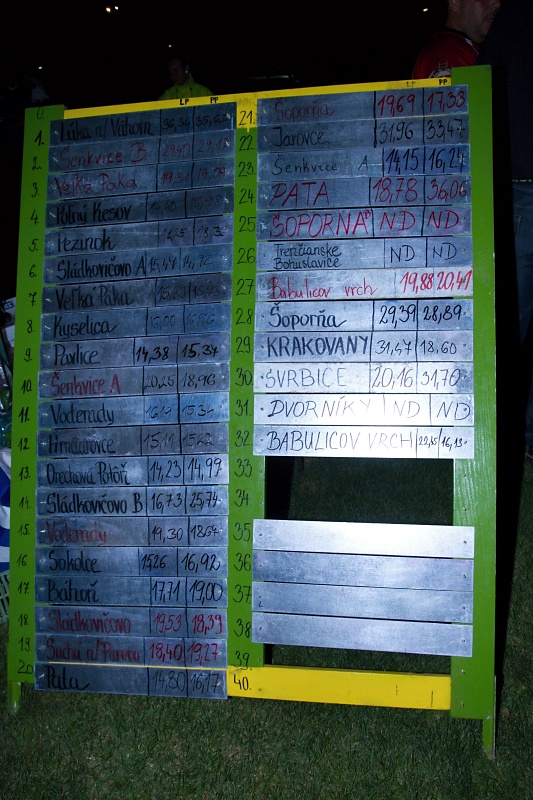 LP PP
1. Lúka n/ Váhom 36,36 35,63
2. Šenkvice B
3. Veľké Paka
4. Poľný Kesov
5. Pezinok
6. Sládkovičovo A 15,47 14,72
7. Veľká Paka
8. Kyselica
9. Pavlice 14,38 15,34
10. Šenkvice A 20,25 18,96
11. Voderady
12.
13. Orechová Potôň 14,23 14,99
14. Sládkovičovo B 16,73 25,74
15. Voderady 19,30 18,67
16 Sokolce 15,26 16,92
17. Báhoň 17,71 19,00
18. Sládkovičovo 19,53 18,39
19. Suchá n/ Parnou 18,40 19,27
20. Pata 14,80 16,17
LP PP
21. Šoporňa 19,69 17,33
22 Jarovce 31,96 33,47
23. Šenkvice A 14,15 16,24
24. PATA 18,78 36,06
25 ŠOPORŇA ND ND
26 Trenčianske Bohuslavice ND ND
27 Babulicov vrch 19,88 20,41
28 Šoporňa 29,39 28,89
29. KRAKOVANY 31,47 18,60
30. SVRBICE 20,16 31,70
31. DVORNÍKY ND ND
32. BABULICOV VRCH 16,13
33
34
35
36
37
38
39.
40.